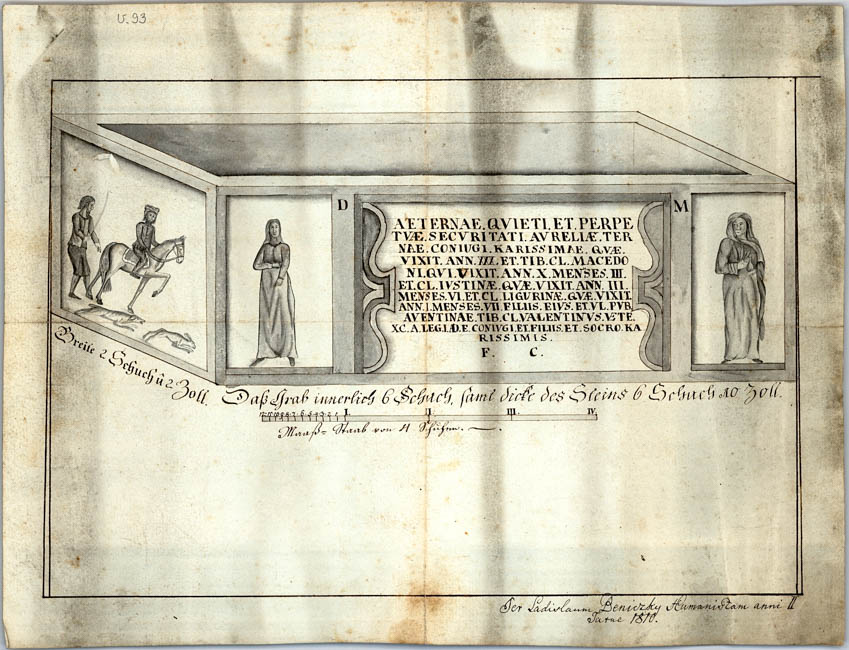 V. 93
D M
AETERNAE. QVIETI. ET. PERPE
TVÆ. SECVRITATI. AVRELLÆ. TER
NAE. CONIUGI. KARISSIMAE. QVÆ.
VIXIT. ANN. III. ET. TIB. CL. MACEDO
NI. QVI. VIXIT. ANN. X. MENSES. III.
ET. CL. IVSTINÆ. QVÆ. VIXIT. ANN. III.
MENSES. VI. ET. CL. LIGURINÆ. QVÆ. VIXIT.
ANN. I. MENSES. VII. FILIIS. EIVS. ET. VL. PVB.
AVENTINAE. TIB. CL. VALENTINVS. VETE.
XC. A. LEG. I. AD. E. CONIVGI. ET. FILIIS. ET. SOCRO. KA
RISSIMIS.
F. C.
Breite 2 Schuch û 2 Zoll.
Daß Grab innerlich 6 Schuch, samt dicke des Steins 6 Schuch 10 Zoll.
I. II. III. IV.
Maaß=Staab von 4 Schuhen.
Per Ladislaum Beniczky Humanistam anni II
1810.